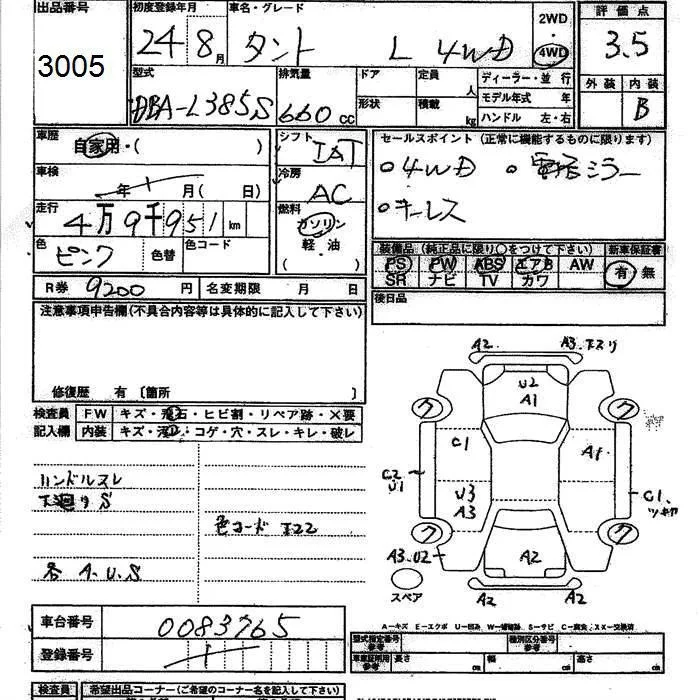 出品番号 初度登録年月 車名・グレード 2WD 評価点
3005 24年8月 タント L 4WD ・ 4WD 3.5
型式 排気量 ドア 定員 人 ディーラー・並行 外装 内装
DBA-L385S 660cc 形状 積載 kg モデル年式 年 B
ハンドル 左・右
車歴 自家用・( ) シフト IAT セールスポイント (正常に機能するものに限ります)
車検 年 1 月( 日) 冷房 AC 。4WD 。電格ミラー
走行 4万9千951km 燃料 ガソリン 。キーレス
色 ピンク 色替 色コード 軽・油
( )
装備品 (純正品に限り○をつけて下さい) 新車保証書
PS PW ABS エアB AW 有 無
SR ナビ TV カワ
R券 9200円 名変期限 月 日 後日品
注意事項申告欄(不具合内容等は具体的に記入して下さい)
修復歴 有 〔箇所 〕
検査員 FW キズ・飛石・ヒビ割・リペア跡・×要
記入欄 内装 キズ・汚レ・コゲ・穴・スレ・キレ・破レ
ハンドルスレ
下廻りS
色コード T22
各 A.U.S
A2 A3.
U2
A1
ク ク
C1 A1
C2
U1
U3
A3
C1、
ク ク
A3.U2
A2
スペア A2 A2
A-キズ E-エクボ U-凹み W-補修跡 S-サビ C-腐食 XX-交換済
車台番号 0083765
登録番号
型式指定番号 参考 種別区分番号 参考
参考 長さ cm 幅 cm 高さ cm
検査員 希望出品コーナー(ご希望のコーナー名を記入して下さい)